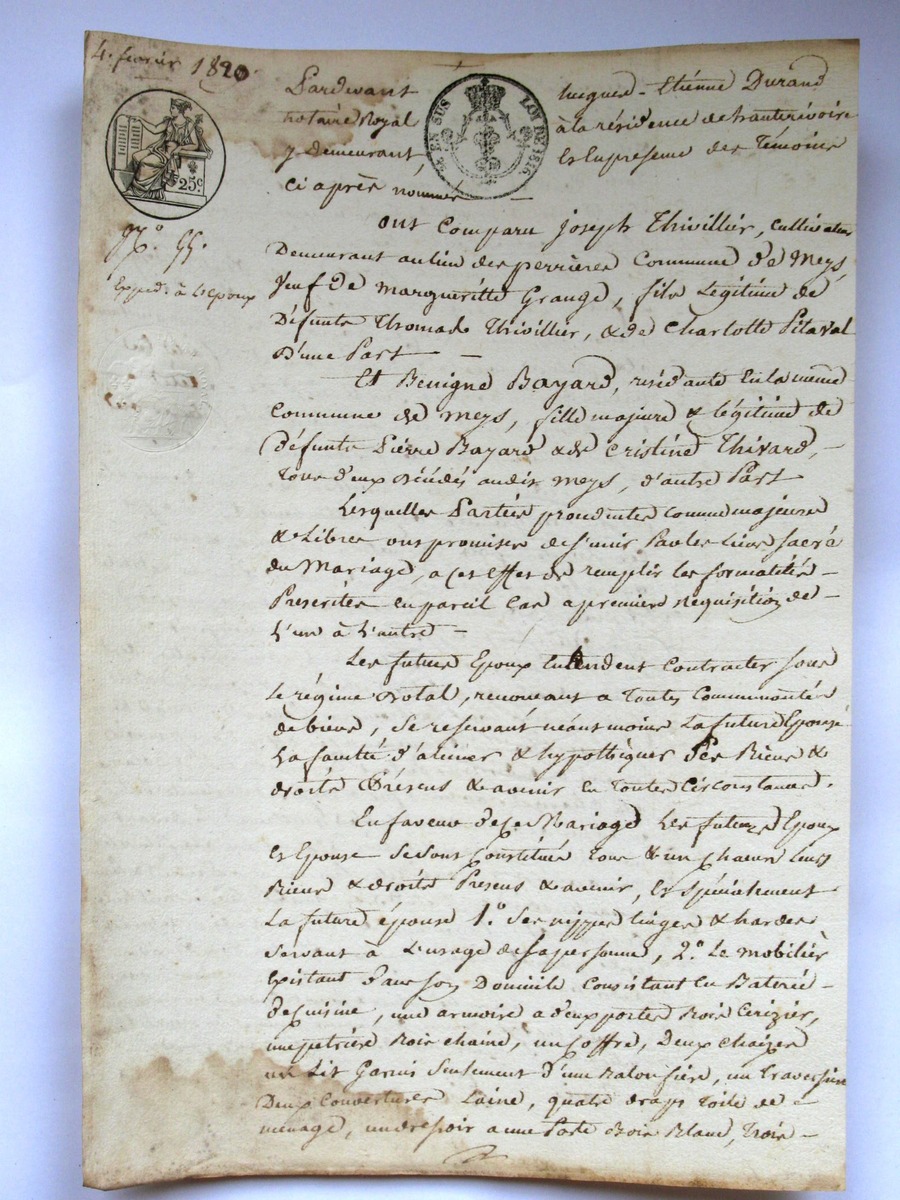 4. fevrier 1820.
25c
EN SUS
LOI DE 1816.
N.o 55.
Expéd. à L'Epoux
Pardevant hugues-Etiénne Durand
notaire Royal à la résidence de hauterivoire
y demeurant, Et En présence des Témoins
Ci après nommés —
ont Comparu joseph Thivillier, Cultivateur
Demeurant au lieu des perrieres Commune de Meys,
Veuf de Margueritte Grange, fils Legitime de
Défunts Thomas Thivillier, & de Charlotte Pitaval
D'une Part —
Et Benigne Bayard, résidante En la même
Commune de Meys, fille majure & légitime de
Défunts Pierre Bayard & de Cristine Thivard, —
Tous d'eux décédés audit Meys, d'autre Part
Lesquelles Parties procédentes Comme majeures
& Libres ont promises de S'unir Par les Liens Sacrés
du Mariage, a Cet Effet de remplir les formalités —
Prescrites en pareil Cas a premiere Réquisition de —
L'un à L'autre —
Les futurs Epoux Entendent Contracter Sous
Le régime Dotal, renoncant a Toutes Communautés
de biens, Se reservant néant moins La future Epouse
La faculté d'aliéner & hypothéquer Ses Biens &
droits Présens & avenir En Toutes Circonstances.
En faveur de Ce Mariage Les futurs Epoux
Et Epouse Se Sont Constitués Tous & un Chacun Leurs
Biens & droits Presens & avenir, Et Spécialement
La future épouse 1.o Ses nippes linges & hardes
Servant à L'usage de Sa personne, 2.o Le mobilier
Existant dans Son Domicile Consistant En Baterie —
de Cuisine, une armoire a d'eux portes Bois Cerizier,
une petriere Bois chaine, un Coffre, Deux chaizes
un Lit Garnis Seulement d'une Baloussiere, un Traversier
Deux Couvertures Laine, quatre draps Toile de —
ménage, un dressoir a une Porte Bois Blanc, Trois —